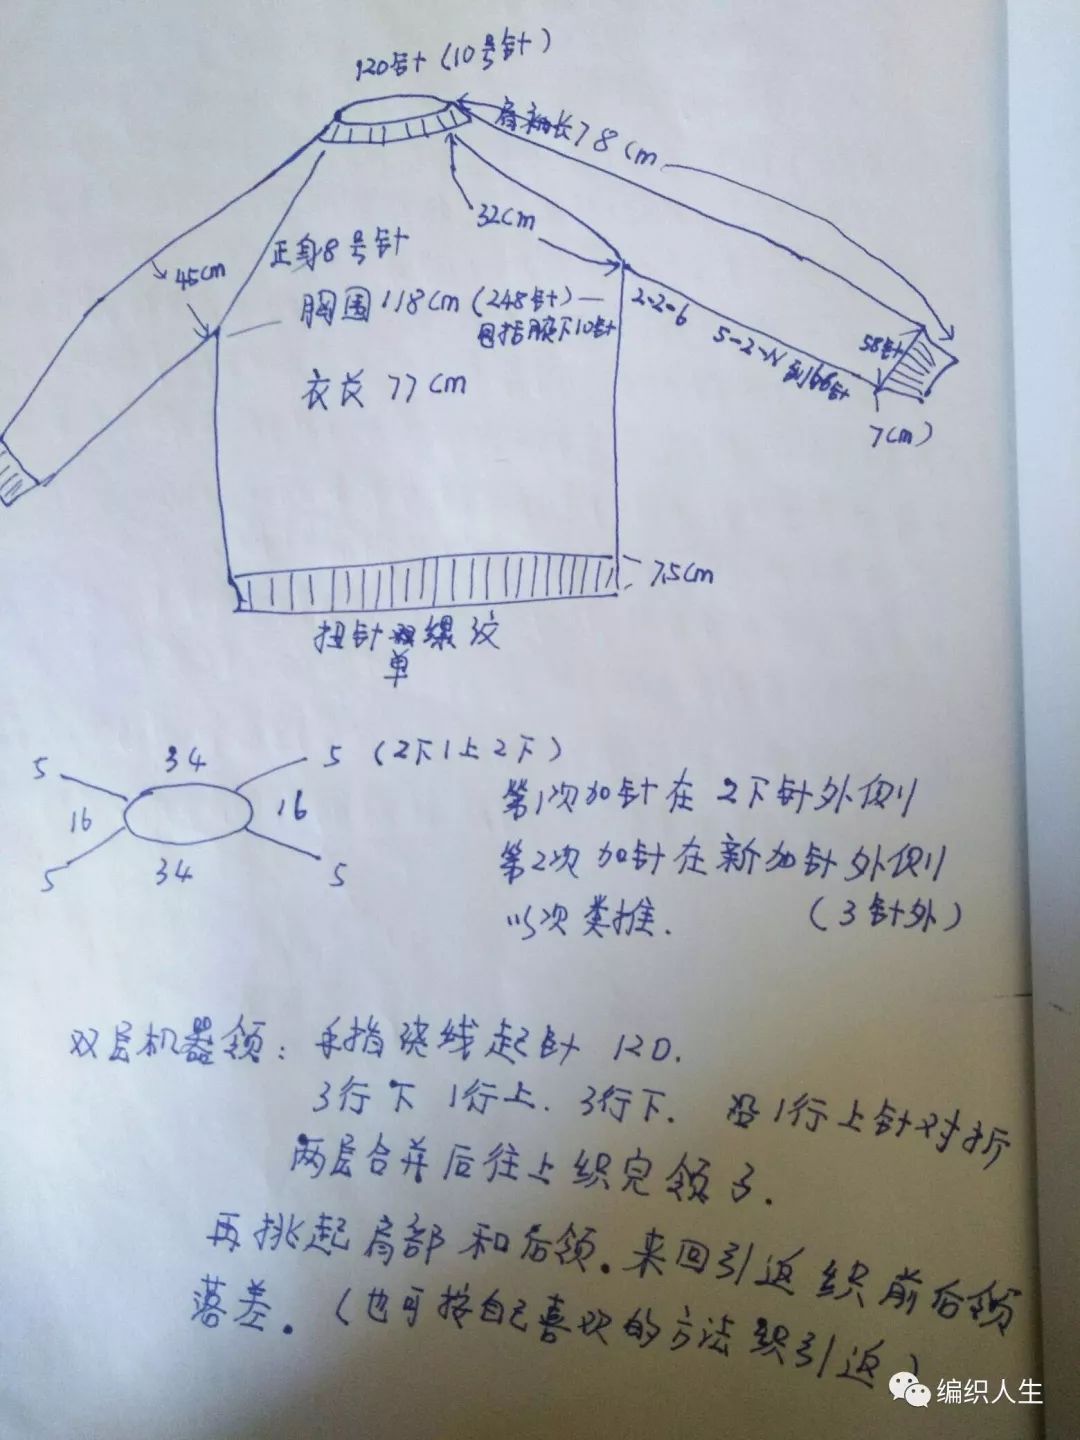 120针(10号针)
肩袖长78cm
32cm
45cm
正身8号针
胸围118cm(248针)—
包括腋下10针
2-2-6
5-2-N 到66针
58针
衣长 77cm
7cm)
7.5cm
扭针 螺纹
单
34
5
5 (2下1上2下)
16
16
34
5
5
第1次加针在2下针外侧
第2次加针在新加针外侧
以次类推. (3针外)
双层机器领: 手指绕线起针 120.
3行下 1行上. 3行下. 沿1行上针对折
两层合并后往上织完领子.
再挑起肩部和后领.来回引返织前后领
落差.(也可按自己喜欢的方法织引返)
编织人生